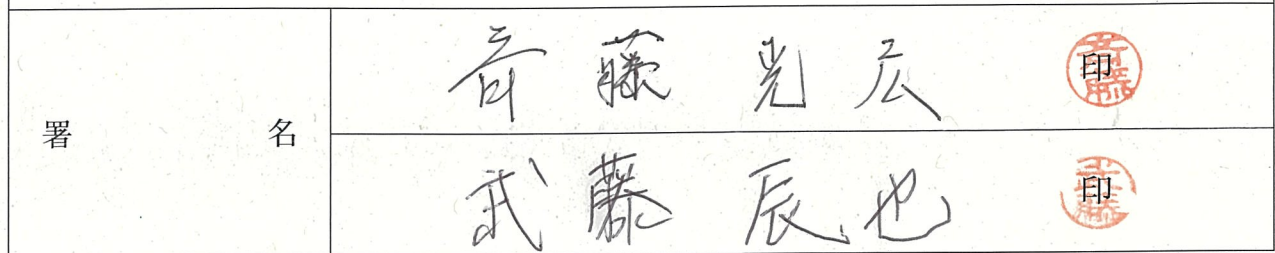 署名
斉藤 光広 印
武藤 辰也 印